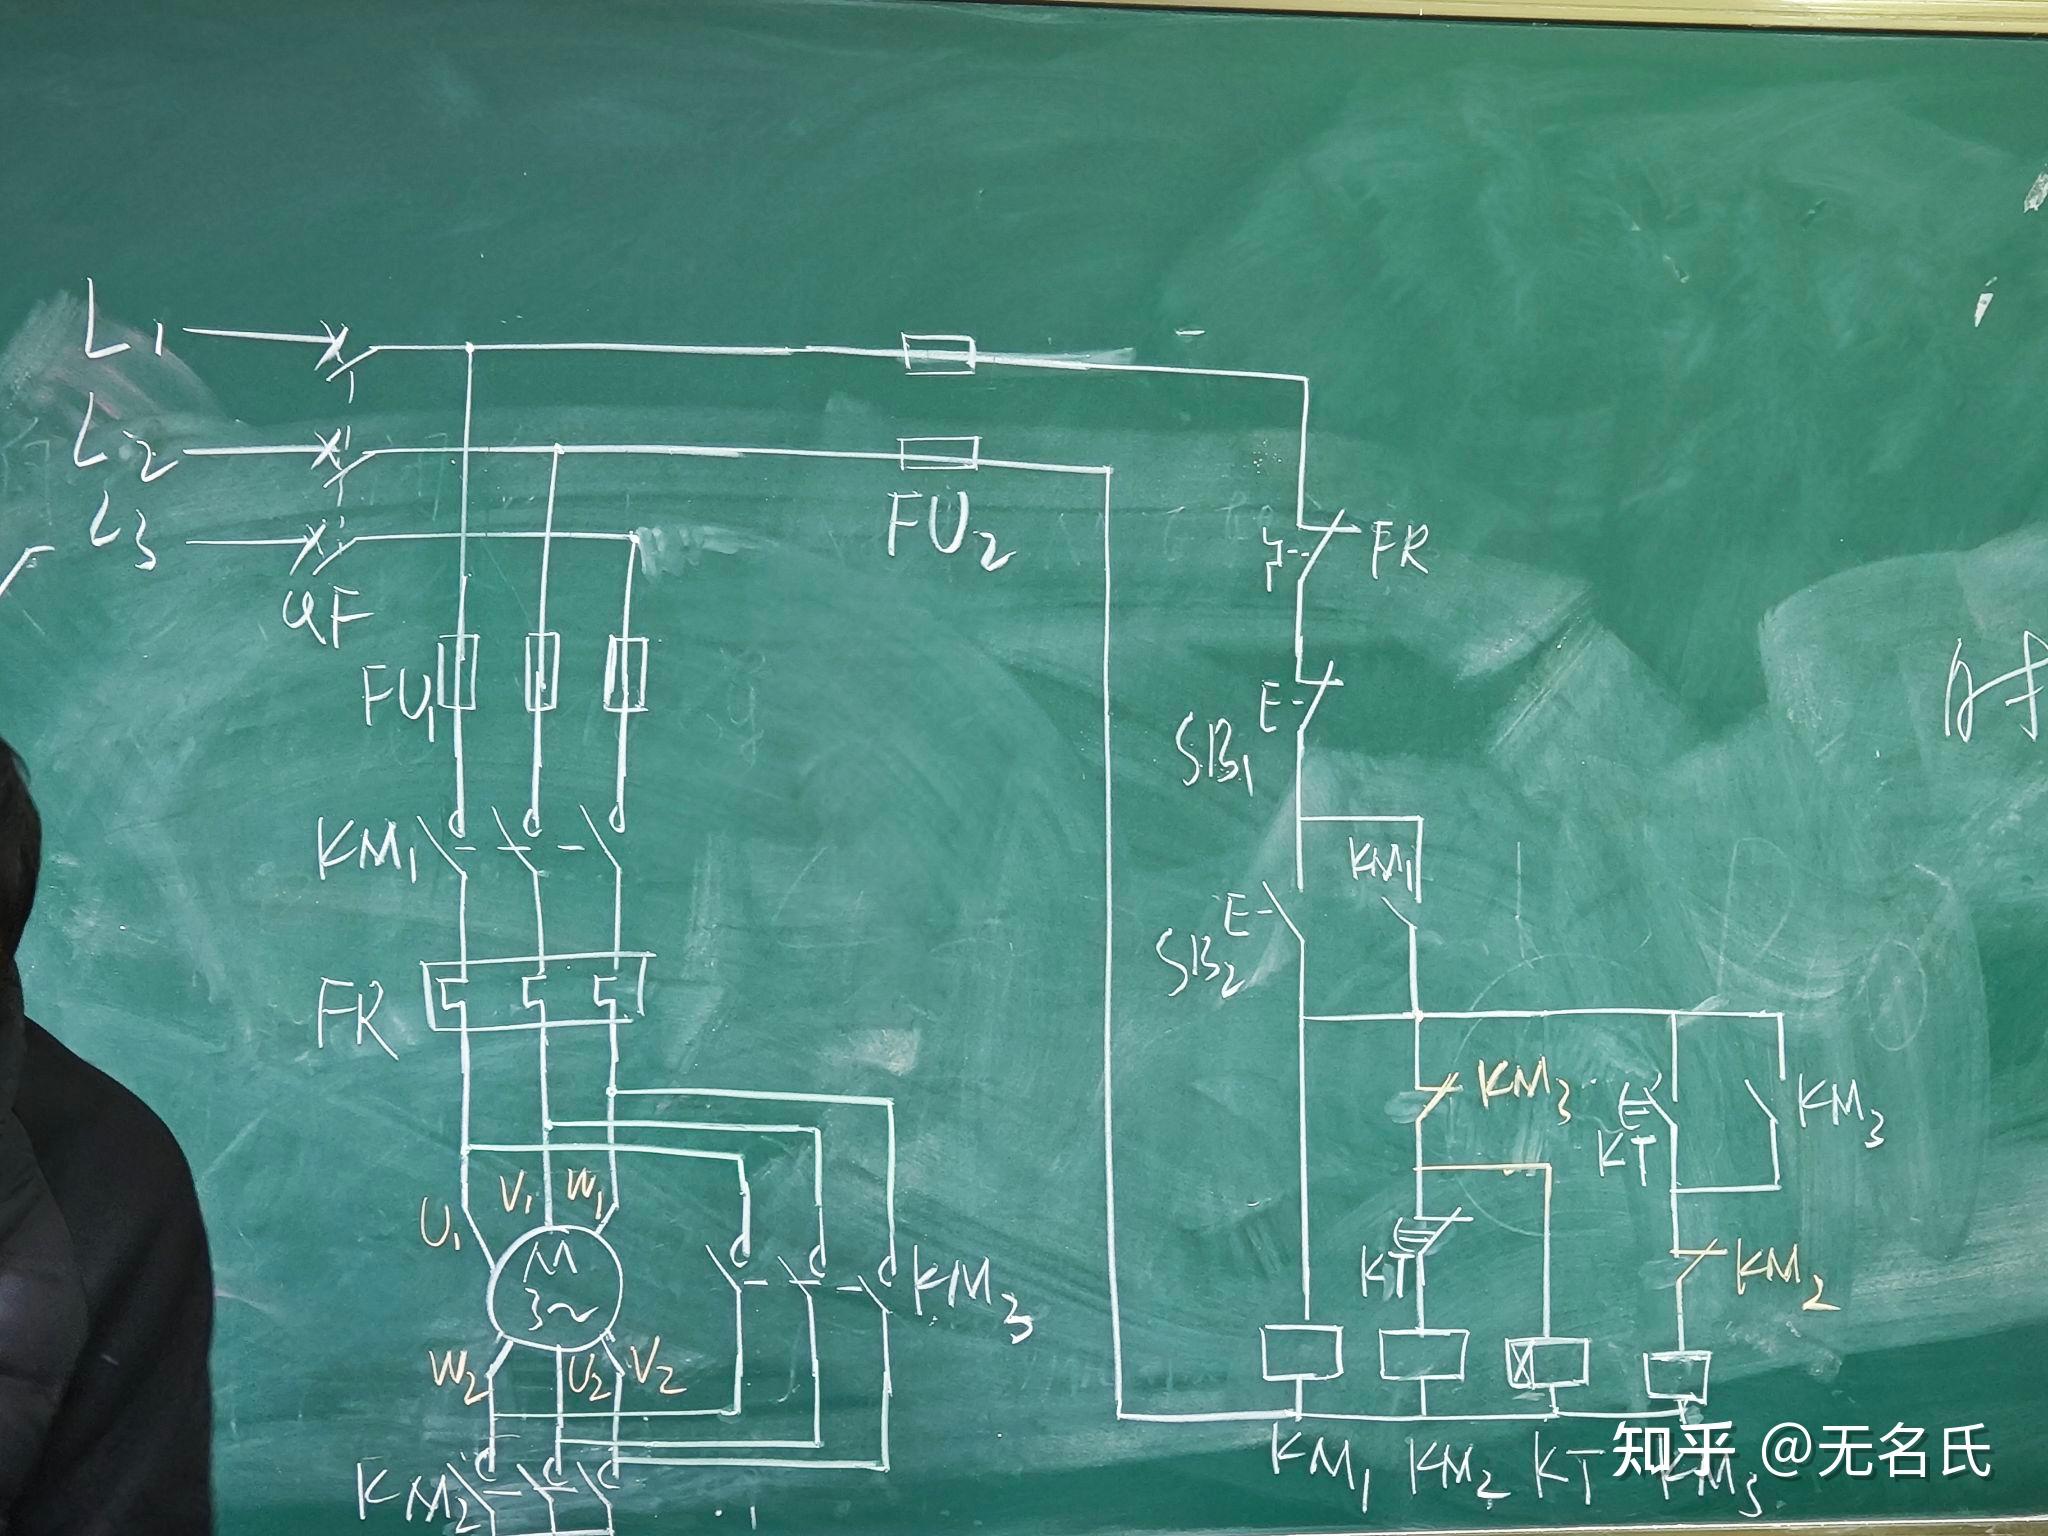 L1
L2
L3
QF
FU2
FR
FU1
SB1
KM1
KM1
SB2
FR
KM3
KM3
KT
U1 V1 W1
M
3~
KT
KM2
KM3
W2 U2 V2
KM2
KM1 KM2 KT KM3
时
知乎 @无名氏